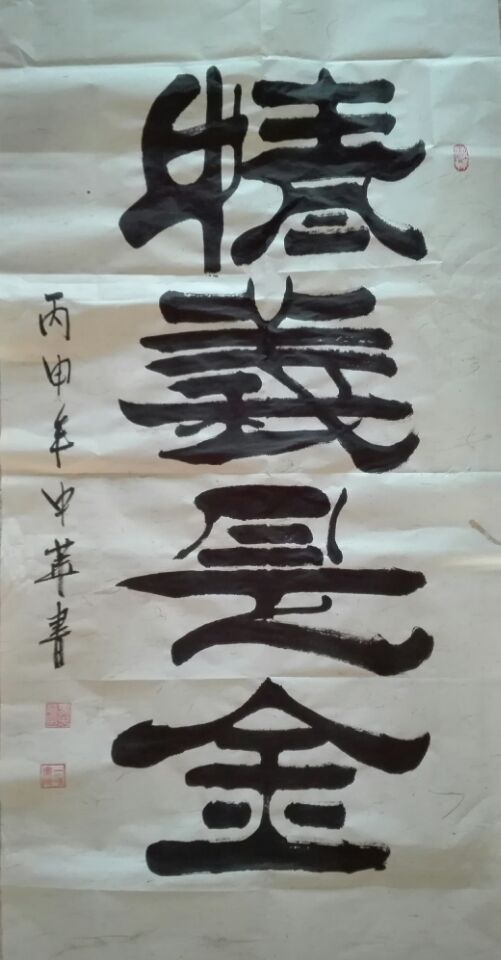 情義是金
丙申年中華書